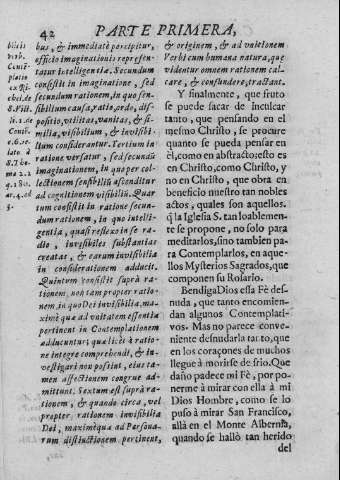 42 PARTE PRIMERA,
bus, & immediatè percipitur,
officio imaginationis repræsen-
tatur intelligentiæ. Secundum
consistit in imaginatione, sed
secundum rationem, in quo sen-
sibilium causa, ratio, ordo, dis-
positio, vtilitas, vanitas, & si-
milia, visibilium, & invisibi-
lium considerantur. Tertium in
ratione versatur, sed secundum
imaginationem, in quo per col-
lectionem sensibilis asconditur
ad cognitionem visibilis. Quar-
tum consistit in ratione secun-
dum rationem, in quo intelli-
gentia, quasi reflexo in se ra-
dio, invisibiles substantias
creatas, & earum invisibilia
in considerationem adducit.
Quintum consistit suprà ra-
tionem, non tam propter ratio-
nem, in quo Dei invisibilia, ma-
ximè quæ ad vnitatem essentiæ
pertinent in Contemplationem
adducuntur; quæ licèt à ratio-
ne integre comprehendi, & in-
vestigari non possint, eius ta-
men assectionem congruè ad-
mittunt. Sextum est suprà ra-
tionem, & quando circa, vel
propter rationem invisibilia
Dei, maximèque ad Persona-
rum distinctionem pertinent,
bilis
tribu.
platio
ex Ri.
chri. de
S. Vict.
li. 1. de
ad
2. 2
q. 180.
ar. 4. ad
3.
& originem, & ad vnionem
Verbi cum humana natura, quæ
videntur omnem rationem cal-
care, & confundere, tractant.
Y finalmente, que fruto
se puede sacar de inculcar
tanto, que pensando en el
mesmo Christo, se procure
quanto se pueda pensar en
èl, como en abstracto; esto es
en Christo, como Christo, y
no en Christo, que obra en
beneficio nuestro tan nobles
actos, quales son aquellos.
q̃ la Iglesia S. tan loablemen-
te se propone, no solo para
meditarlos, sino tambien pa-
ra Contemplarlos, en aque-
llos Mysterios Sagrados, que
componen su Rosario.
Bendiga Dios essa Fè des-
nuda, que tanto encomien-
dan algunos Contemplati-
vos. Mas no parece conve-
niente desnudarla tanto, que
en los coraçones de muchos
llegue à morirse de frio. Que
daño padece mi Fè, por po-
nerme à mirar con ella à mi
Dios Hombre, como se lo
puso à mirar San Francisco,
allà en el Monte Albernia,
quando se hallò tan herido
del